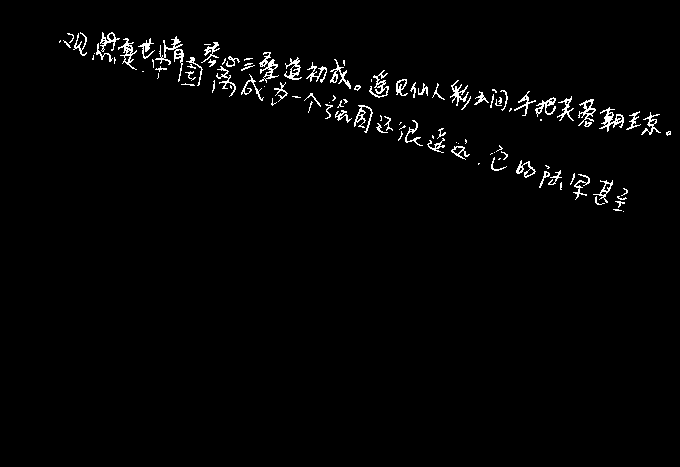 世情。琴心三叠道初成。遥见仙人彩云间,手把芙蓉朝玉京。
中国离成为一个强国还很遥远,它的陆军甚至